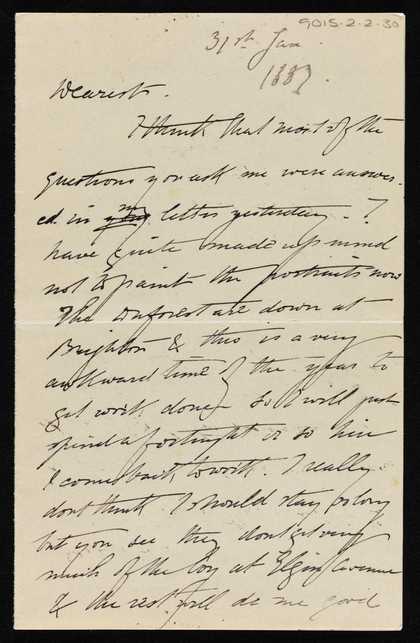 9015-2-2-30
31st Jan
1887.
Dearest.
I think that most of the
questions you ask me were answer-
ed in my letter yesterday. I
have quite made up mind
not to paint the portraits now
The are down at
Brighton & this is a very
awkward time of the year to
get work done so I will just
spend a fortnight or so here
I come back to work. I really
dont think I should stay so long
but you see they dont get very
much of the boy at Elgin Avenue
& the rest will do me good